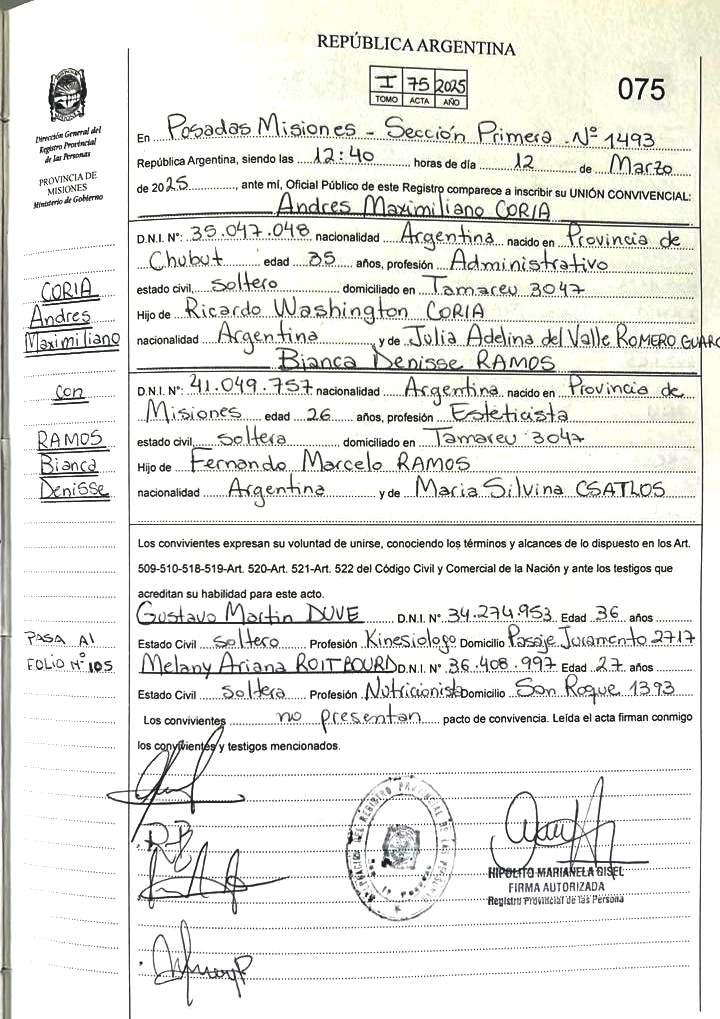 REPÚBLICA ARGENTINA
I 75 2025
TOMO ACTA AÑO
075
Dirección General del
Registro Provincial
de las Personas
PROVINCIA DE
MISIONES
Ministerio de Gobierno
En Posadas Misiones - Sección Primera - Nº 1493
República Argentina, siendo las 12:40 horas de día 12 de Marzo
de 2025, ante mí, Oficial Público de este Registro comparece a inscribir su UNIÓN CONVIVENCIAL:
Andres Maximiliano CORIA
D.N.I. Nº: 35.047.048 nacionalidad Argentina nacido en Provincia de
Chubut edad 35 años, profesión Administrativo
estado civil, soltero domiciliado en Tamareu 3047
Hijo de Ricardo Washington CORIA
nacionalidad Argentina y de Julia Adelina del Valle ROMERO GUARC
CORIA
Andres
Maximiliano
con
RAMOS
Bianca
Denisse
Bianca Denisse RAMOS
D.N.I. Nº: 41.049.757 nacionalidad Argentina nacido en Provincia de
Misiones edad 26 años, profesión Esteticista
estado civil, soltera domiciliado en Tamareu 3047
Hijo de Fernando Marcelo RAMOS
nacionalidad Argentina y de Maria Silvina CSATLOS
Los convivientes expresan su voluntad de unirse, conociendo los términos y alcances de lo dispuesto en los Art.
509-510-518-519-Art. 520-Art. 521-Art. 522 del Código Civil y Comercial de la Nación y ante los testigos que
acreditan su habilidad para este acto.
Gustavo Martin DUVE D.N.I. Nº 34.274.953 Edad 36 años
Estado Civil soltero Profesión Kinesiologo Domicilio Pasaje Juramento 2717
Melany Ariana ROITBOURD D.N.I. Nº 36.408.997 Edad 27 años
Estado Civil soltera Profesión Nutricionista Domicilio San Roque 1393
Los convivientes no presentan pacto de convivencia. Leída el acta firman conmigo
los convivientes y testigos mencionados.
PASA Al
FOLIO Nº 105
RB
HIPOLITO MARIANELA GISEL
FIRMA AUTORIZADA
Registro Provincial de las Persona